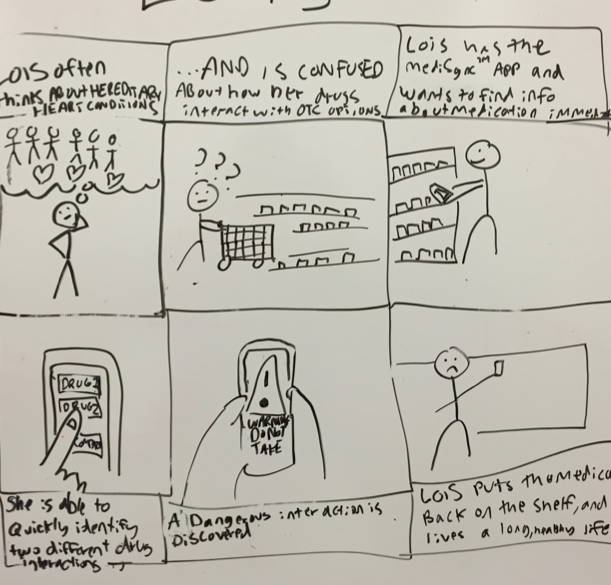 LOIS often
thinks ABOUT HEREDITARY
HEART CONDITIONS
...AND IS CONFUSED
About how her drugs
interact with OTC options
Lois has the
medisync™ APP and
wants to find info
about medication immed
???
DRUG1
DRUG2
!
WARNING
DO NOT
TAKE
She is able to
Quickly identify
two different drug
interactions
A Dangerous interaction is
Discovered
LOIS puts the medica
Back on the shelf, and
lives a long, healthy life